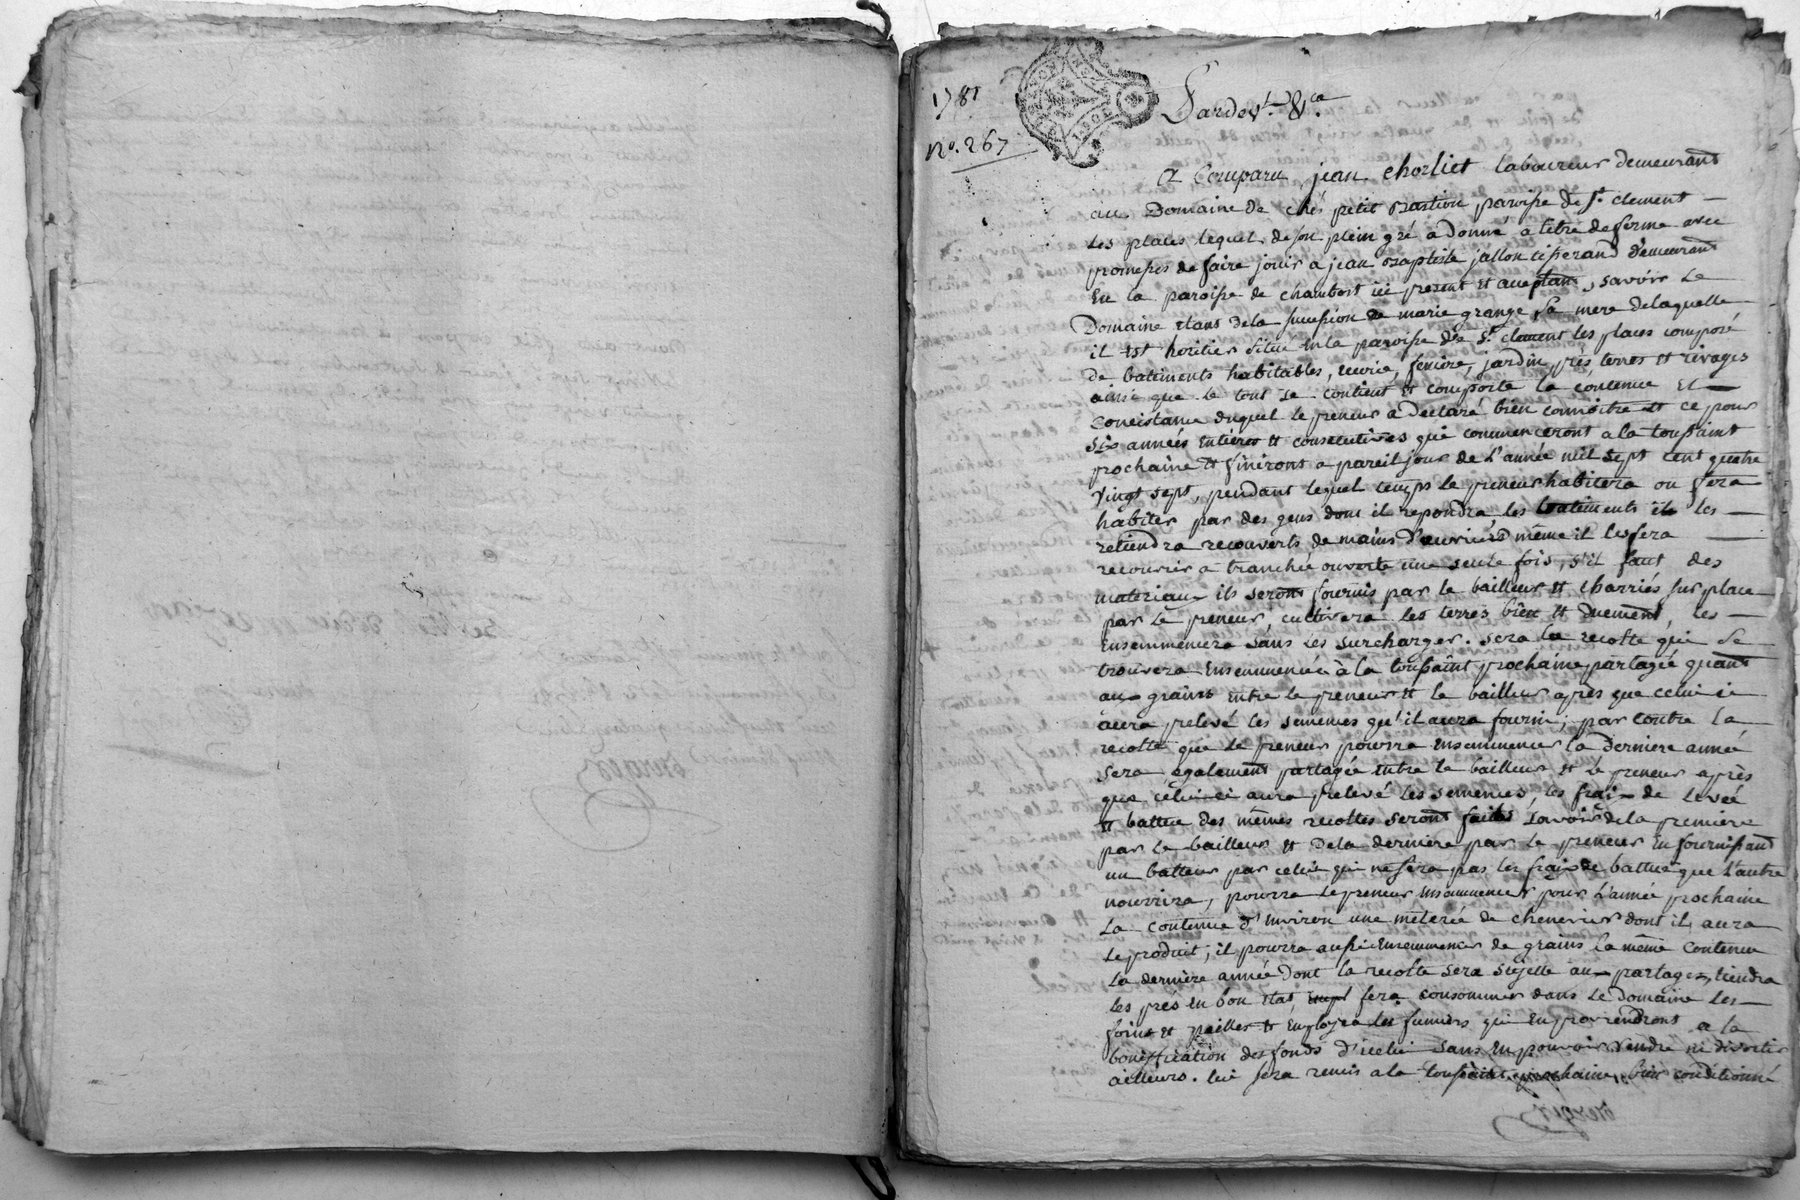 1781
no. 267
Pardevt. &ca.
a Comparu jean chorliet laboureur demeurant
au Domaine de chés petit Bastion paroisse de st. clement
les places lequel de son plein gré a donné a titre de ferme avec
promesses de faire jouir a jean Baptiste jallon tisserand demeurant
En la paroisse de chambost ici present et acceptant, savoir le
Domaine etant dela succession de marie grange sa mere delaquelle
il est heritier situé En la paroisse de st. clement les places composé
de batiments habitables, ecurie, feniere, jardin, prés, terres et rivages
ainsi que le tout se contient et comporte la contenue Et
concistance duquel le preneur a declaré bien connoitre et ce pour
six années entieres et consecutives qui commenceront a la toussaint
prochaine et finiront a pareil jour de l'année mil sept cent quatre
vingt sept, pendant lequel temps le preneur habitera ou fera
habiter par des gens dont il repondra les batiments il les
retiendra recouverts de mains d'ouvriers même il les fera
recouvrir a tranchée ouverte une seule fois, s'il faut des
materiaux ils seront fournis par le bailleur et charriés sur place
par le preneur, cultivera les terres bien et duement, les
Ensemmencera sans les surcharger. sera la recolte qui se
trouvera Ensemmencée à la toussaint prochaine partagée quant
aux grains entre le preneur et le bailleur après que celui ci
aura prelevé les semences qu'il aura fourni; par contre la
recolte que le preneur pourra ensemmencer la derniere année
sera également partagée entre le bailleur et le preneur après
que celui ci aura prelevé les semences, les frais de levée
et battue des mêmes recoltes seront faites savoir dela premiere
par le bailleur et dela derniere par le preneur En fournissant
un batteur par celui qui ne fera pas les frais de battue que l'autre
nourrira, pourra le preneur ensemmencer pour l'année prochaine
La contenue d'Environ une meterée de chenevier dont il aura
le produit; il pourra aussi Ensemmencer de grains la même contenue
la derniere année dont la recolte sera sujette aux partages, tiendra
les prés en bon etat fera consommer dans le Domaine les
foins et pailles et Employera les fumiers qui En proviendront a la
bonification des fonds d'icelui sans En pouvoir vendre ni divertir
ailleurs. lui sera remis a la toussaint prochaine, bien conditionné